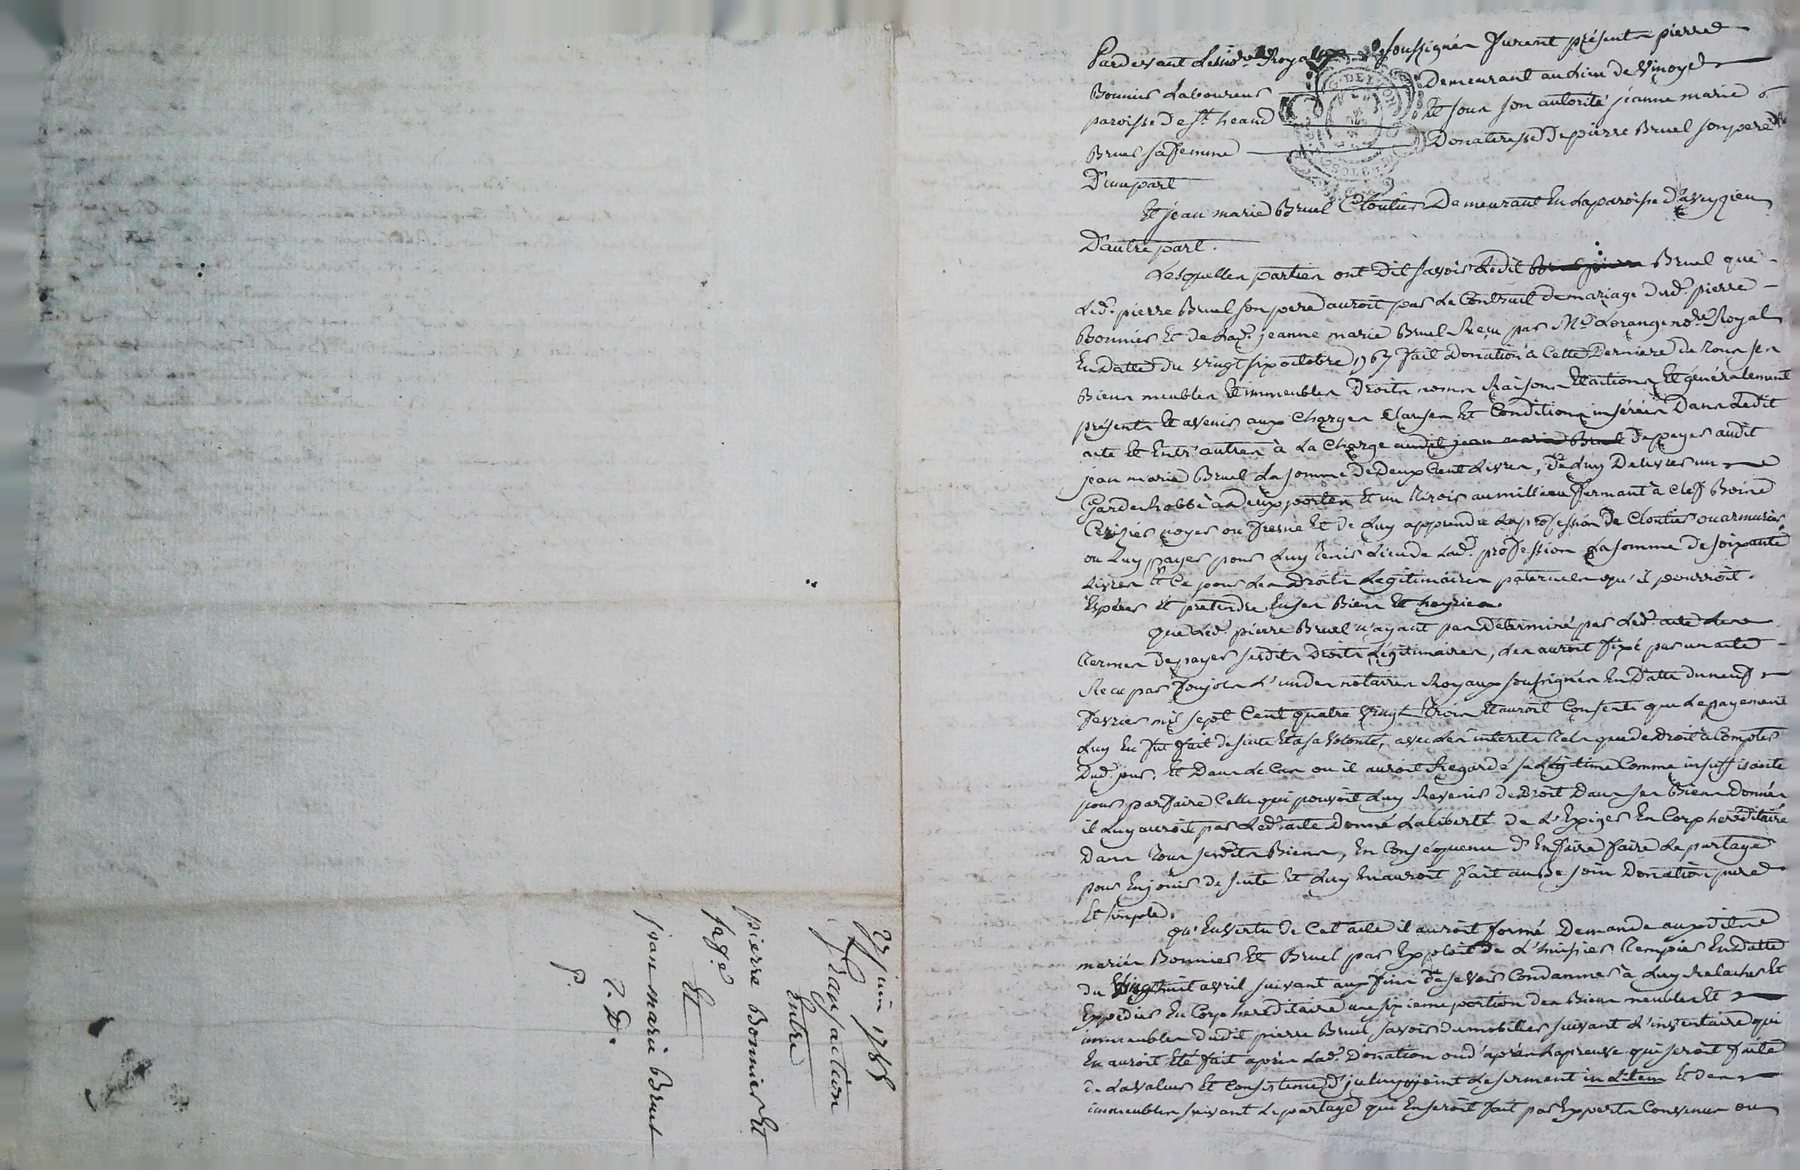 Pardevant Les no.res Royaux soussignés furent présents pierre
Bonnier Laboureur Demeurant au Lieu de Vinoyel
paroisse de s.t heand Et sous son autorité jeanne marie
Bruel sa femme Donateresse De pierre Bruel son pere
D'une part
Et jean marie Bruel Cloutier Demeurant En La paroisse D'aveyzieu
D'autre part.
Lesquelles parties ont Dit savoir Ledit Bruel que
Led. pierre Bruel son pere auroit par Le Contrait de mariage dud. pierre
Bonnier Et de Lad. jeanne marie Bruel Reçu par M.e Lorange no.re Royal
En Datte du vingt six octobre 1767 fait Donation à Cette Derniere de tous ses
Biens meubles Et immeubles Droits noms Raisons Et actions Et généralement
présents Et avenir aux Charges Clauses Et Conditions insérées Dans Ledit
acte Et Entr'autres à La Charge audit jean marie Bruel De payer audit
jean marie Bruel La somme De Deux Cent Livres, De Luy Delivrer un
Garderobbe à deux portes Et un tiroir au millieu fermant à Clef Bois de
Cerisier noyer ou fresne Et de Luy apprendre La profession De Cloutier ou armurier
ou Luy payer pour Luy tenir Lieu de Lad. profession La somme de soixante
Livres Et Ce pour Les Droits Legitimaires paternels qu'il pourroit
Espérer Et pretendre En ses Biens Et hoyries
Que Led. pierre Bruel n'ayant pas Déterminé par Led. acte Les
termes De payer sesdits Droits Légitimaires, Les auroit fixé par un acte
Reçu par Joujon L'un des notaires Royaux soussignés En Datte du neuf
fevrier mil sept Cent quatre vingt trois Et auroit Consenti que Le payement
Luy En fut fait de suite Et a sa volonté, avec Les interets tels que de Droit à Compter
Dud. jour. Et Dans Le Cas ou il auroit Regardé sa Légitime Comme insuffisante
pour parfaire Celle qui pouvoit Luy Revenir de Droit Dans ses Biens Donnés
il Luy auroit par Led. acte Donné La liberté de L'Exiger En Corp héréditaire
Dans tous sesdits Biens, En Conséquence D'En faire faire Le partage
pour En jouir de suite Et Luy En auroit fait au Be soin Donation pure
Et simple.
Qu'En vertu de Cet acte il auroit formé Demande auxdits
mariés Bonnier Et Bruel par Exploit De L'huissier Tempier En Datte
du vingt huit avril suivant aux fins De se voir Condamner à Luy Relacher Et
Expedier En Corp hereditaire une sixieme portion Des Biens meubles Et
immeubles dudit pierre Bruel, savoir du mobilier suivant L'inventaire qui
En auroit Eté fait après Lad. Donation ou d'après La preuve qui seroit faite
de La valeur Et Consistence, y joint Le serment in Litem Et Des
immeubles suivant Le partage qui En seroit fait par Experts Convenus ou
juin 1788
Transaction
Entre
pierre Bonnier Et
sa f.e
Et
jean marie Bruel
2. D.
P.